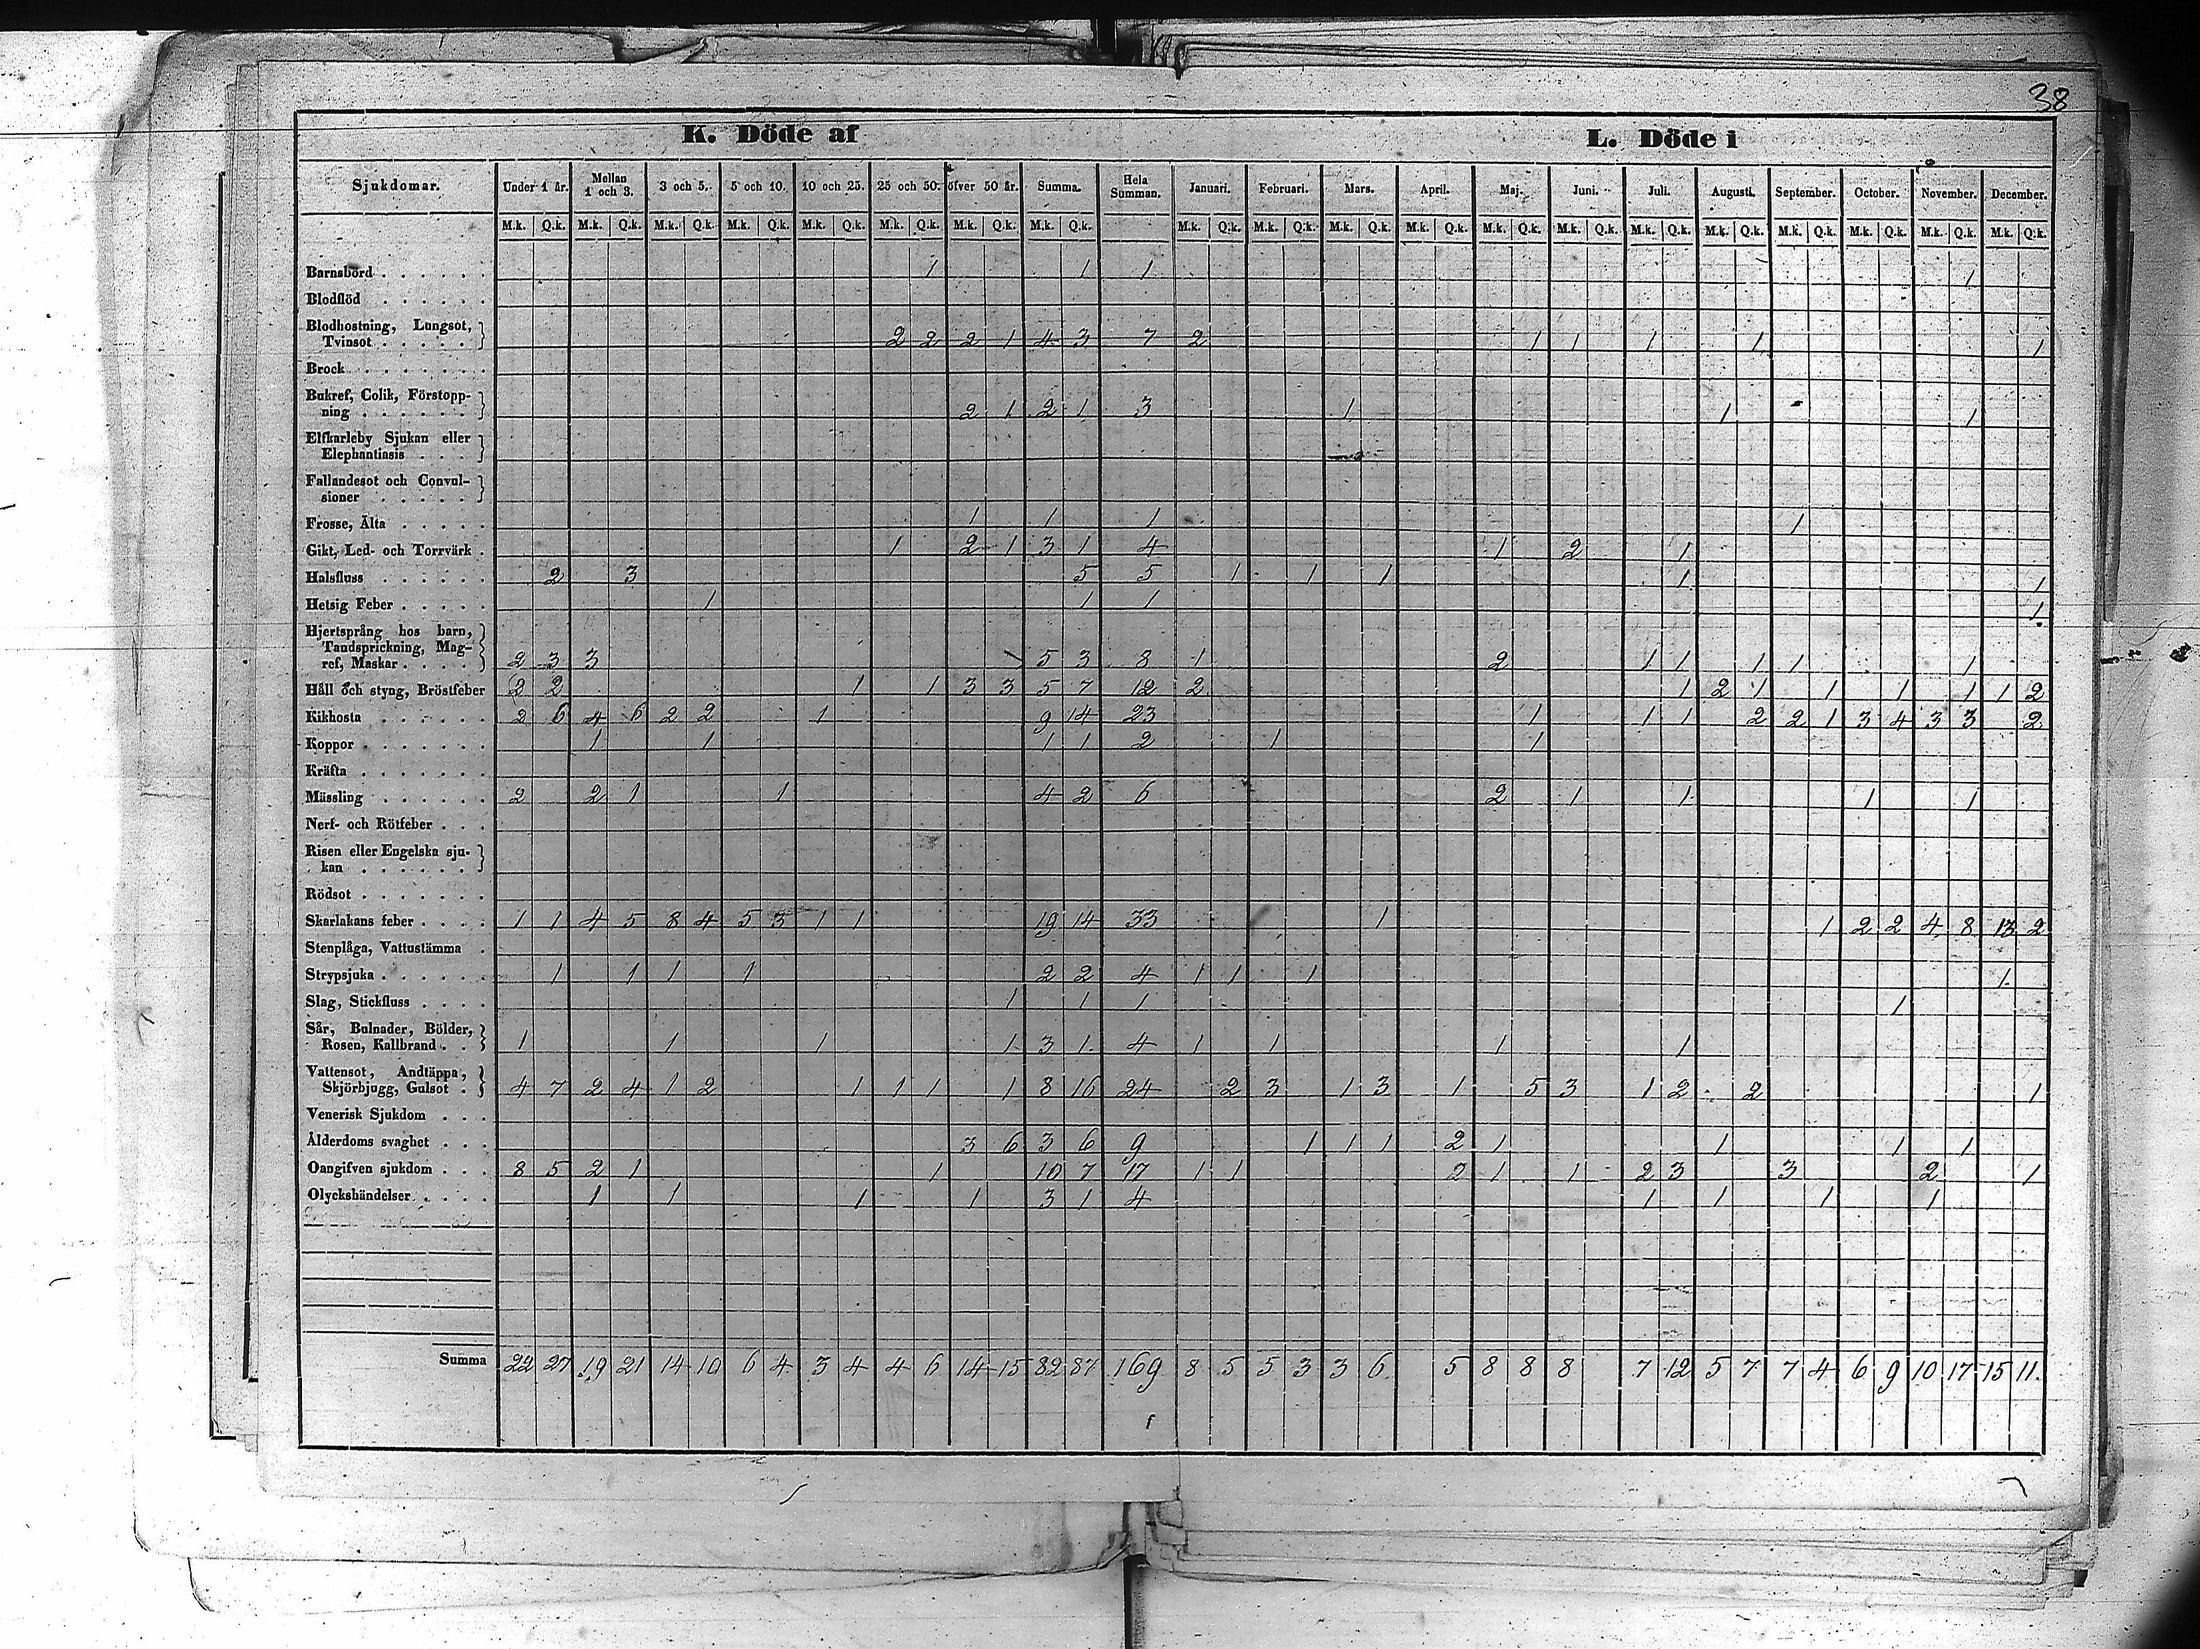 38
K. Döde af L. Döde i
Sjukdomar. Under 1 år. Mellan 1 och 3. 3 och 5. 5 och 10. 10 och 25. 25 och 50. öfver 50 år. Summa. Hela Summan. Januari. Februari. Mars. April. Maj. Juni. Juli. Augusti. September. October. November. December.
M.k. Q.k. M.k. Q.k. M.k. Q.k. M.k. Q.k. M.k. Q.k. M.k. Q.k. M.k. Q.k. M.k. Q.k. M.k. Q.k. M.k. Q.k. M.k. Q.k. M.k. Q.k. M.k. Q.k. M.k. Q.k. M.k. Q.k. M.k. Q.k. M.k. Q.k. M.k. Q.k. M.k. Q.k. M.k. Q.k.
Barnsbörd 1 1 1 1
Blodflöd
Blodhostning, Lungsot,
Tvinsot 2 2 2 1 4 3 7 2 1 1 1 1 1
Brock
Bukref, Colik, Förstopp-
ning 2 1 2 1 3 1 1 1
Elfkarleby Sjukan eller
Elephantiasis
Fallandesot och Convul-
sioner
Frosse, Älta 1 1 1 1
Gikt, Led- och Torrvärk 1 2 1 3 1 4 1 2 1
Halsfluss 2 3 5 5 1 1 1 1 1
Hetsig Feber 1 1 1 1
Hjertsprång hos barn,
Tandsprickning, Mag-
ref, Maskar 2 3 3 5 3 8 1 2 1 1 1 1 1
Håll och styng, Bröstfeber 2 2 1 1 3 3 5 7 12 2 1 2 1 1 1 1 1 2
Kikhosta 2 6 4 6 2 2 1 9 14 23 1 1 1 2 2 1 3 4 3 3 2
Koppor 1 1 1 1 2 1 1
Kräfta
Mässling 2 2 1 1 4 2 6 2 1 1 1 1
Nerf- och Rötfeber
Risen eller Engelska sju-
kan
Rödsot
Skarlakans feber 1 1 4 5 8 4 5 3 1 1 19 14 33 1 1 2 2 4 8 13 2
Stenplåga, Vattustämma
Strypsjuka 1 1 1 1 2 2 4 1 1 1 1
Slag, Stickfluss 1 1 1 1
Sår, Bulnader, Bölder,
Rosen, Kallbrand 1 1 1 1 3 1 4 1 1 1 1
Vattensot, Andtäppa,
Skjörbjugg, Gulsot 4 7 2 4 1 2 1 1 1 1 8 16 24 2 3 1 3 1 5 3 1 2 2 1
Venerisk Sjukdom
Ålderdoms svaghet 3 6 3 6 9 1 1 1 2 1 1 1 1
Oangifven sjukdom 8 5 2 1 1 10 7 17 1 1 2 1 1 2 3 3 2 1
Olyckshändelser 1 1 1 1 3 1 4 1 1 1 1
Summa 22 27 19 21 14 10 6 4 3 4 4 6 14 15 82 87 169 8 5 5 3 3 6 5 8 8 8 7 12 5 7 7 4 6 9 10 17 15 11